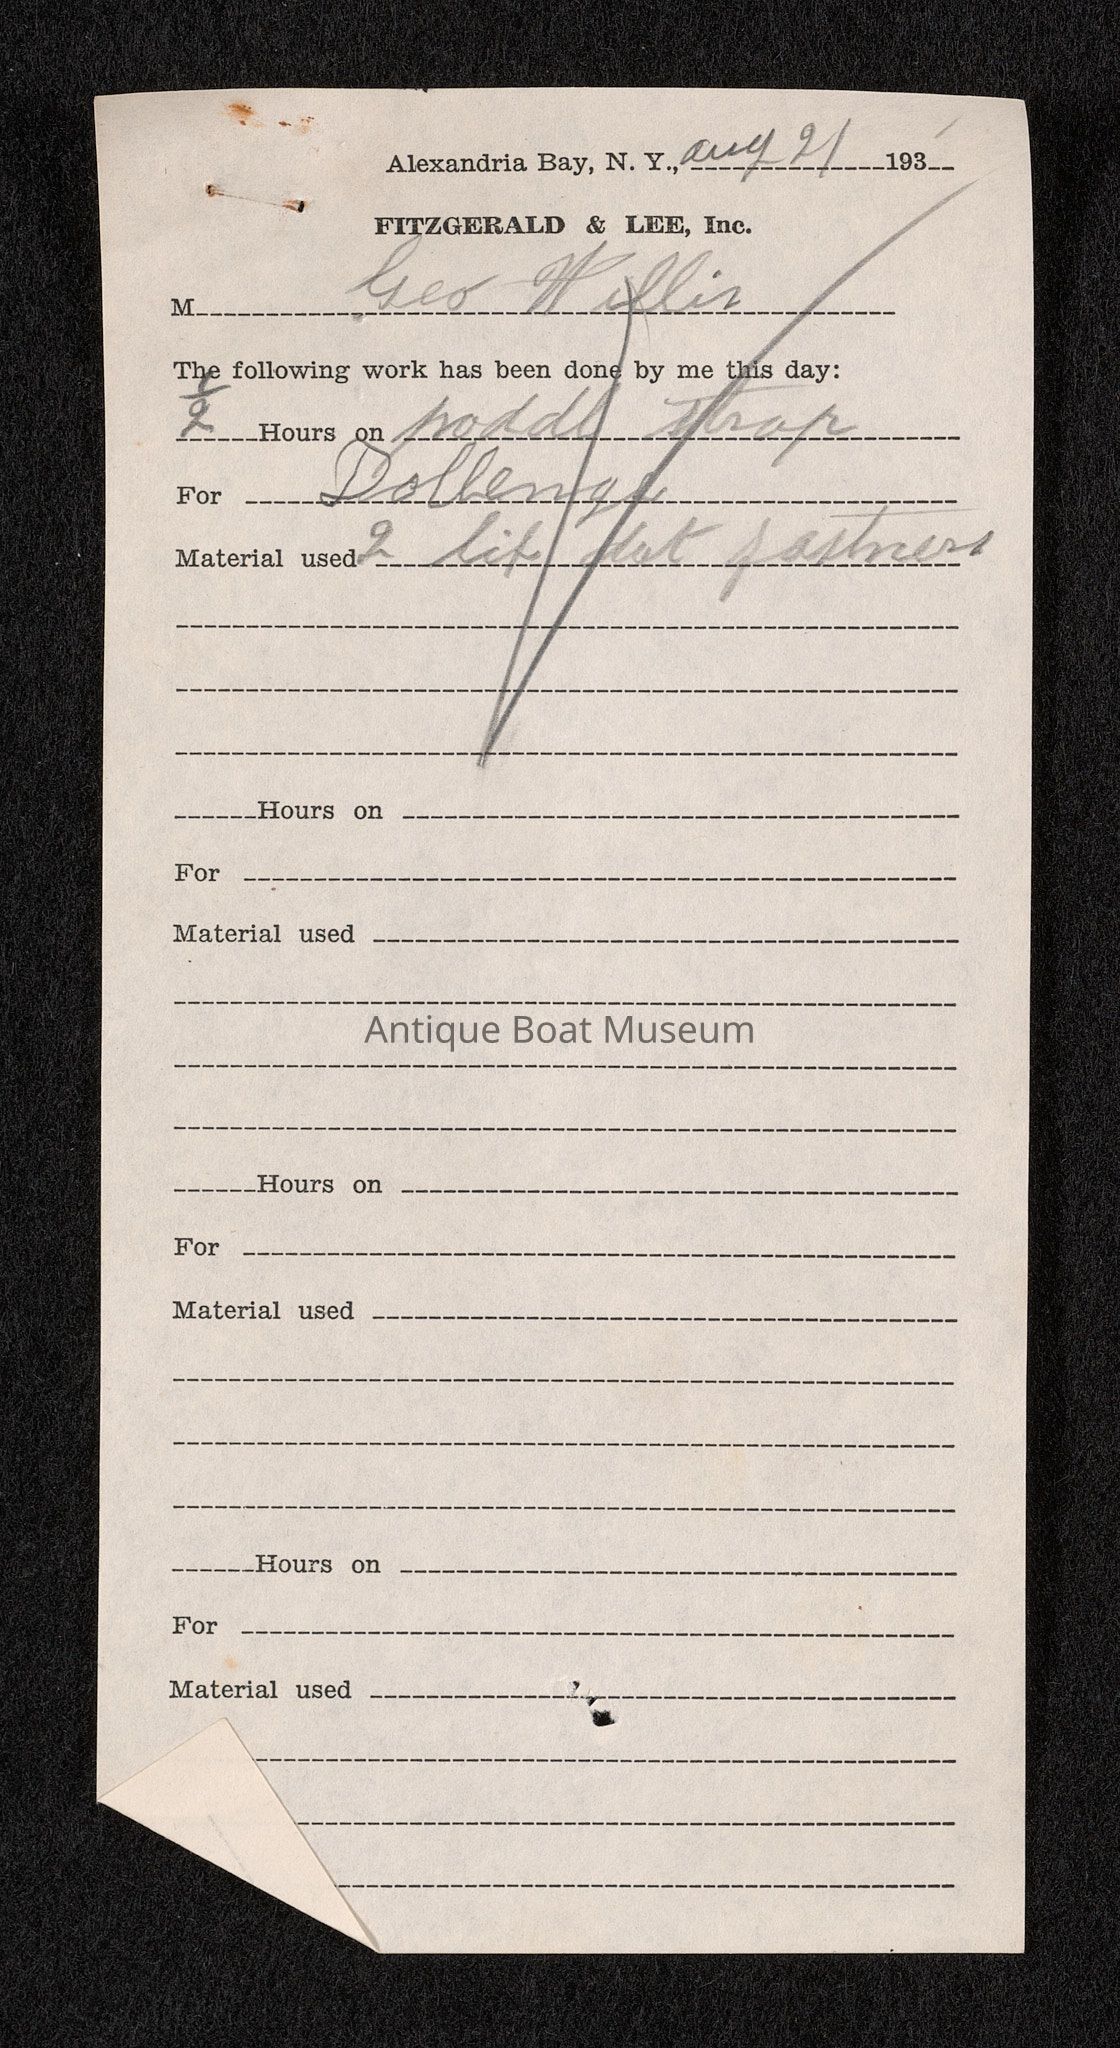 Alexandria Bay, N. Y., aug 21 193
FITZGERALD & LEE, Inc.
M Geo Willis
The following work has been done by me this day:
1/2 Hours on paddl strap
For
Material used 2 lift dot fastners
Hours on
For
Material used
Antique Boat Museum
Hours on
For
Material used
Hours on
For
Material used